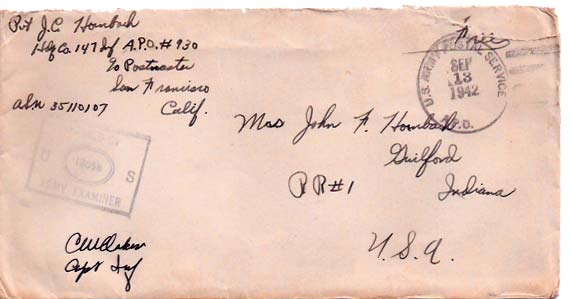 Pvt J.C. Hornbach
Hdq Co. 147 Inf A.P.O. # 930
c/o Postmaster
San Francisco
Calif.
asn 35110107
Free
U.S. ARMY POSTAL SERVICE
SEP
13
1942
A.P.O.
Mrs John F. Hornbach
Guilford
RR #1 Indiana
U.S.A.
U S
ARMY EXAMINER
Capt Inf